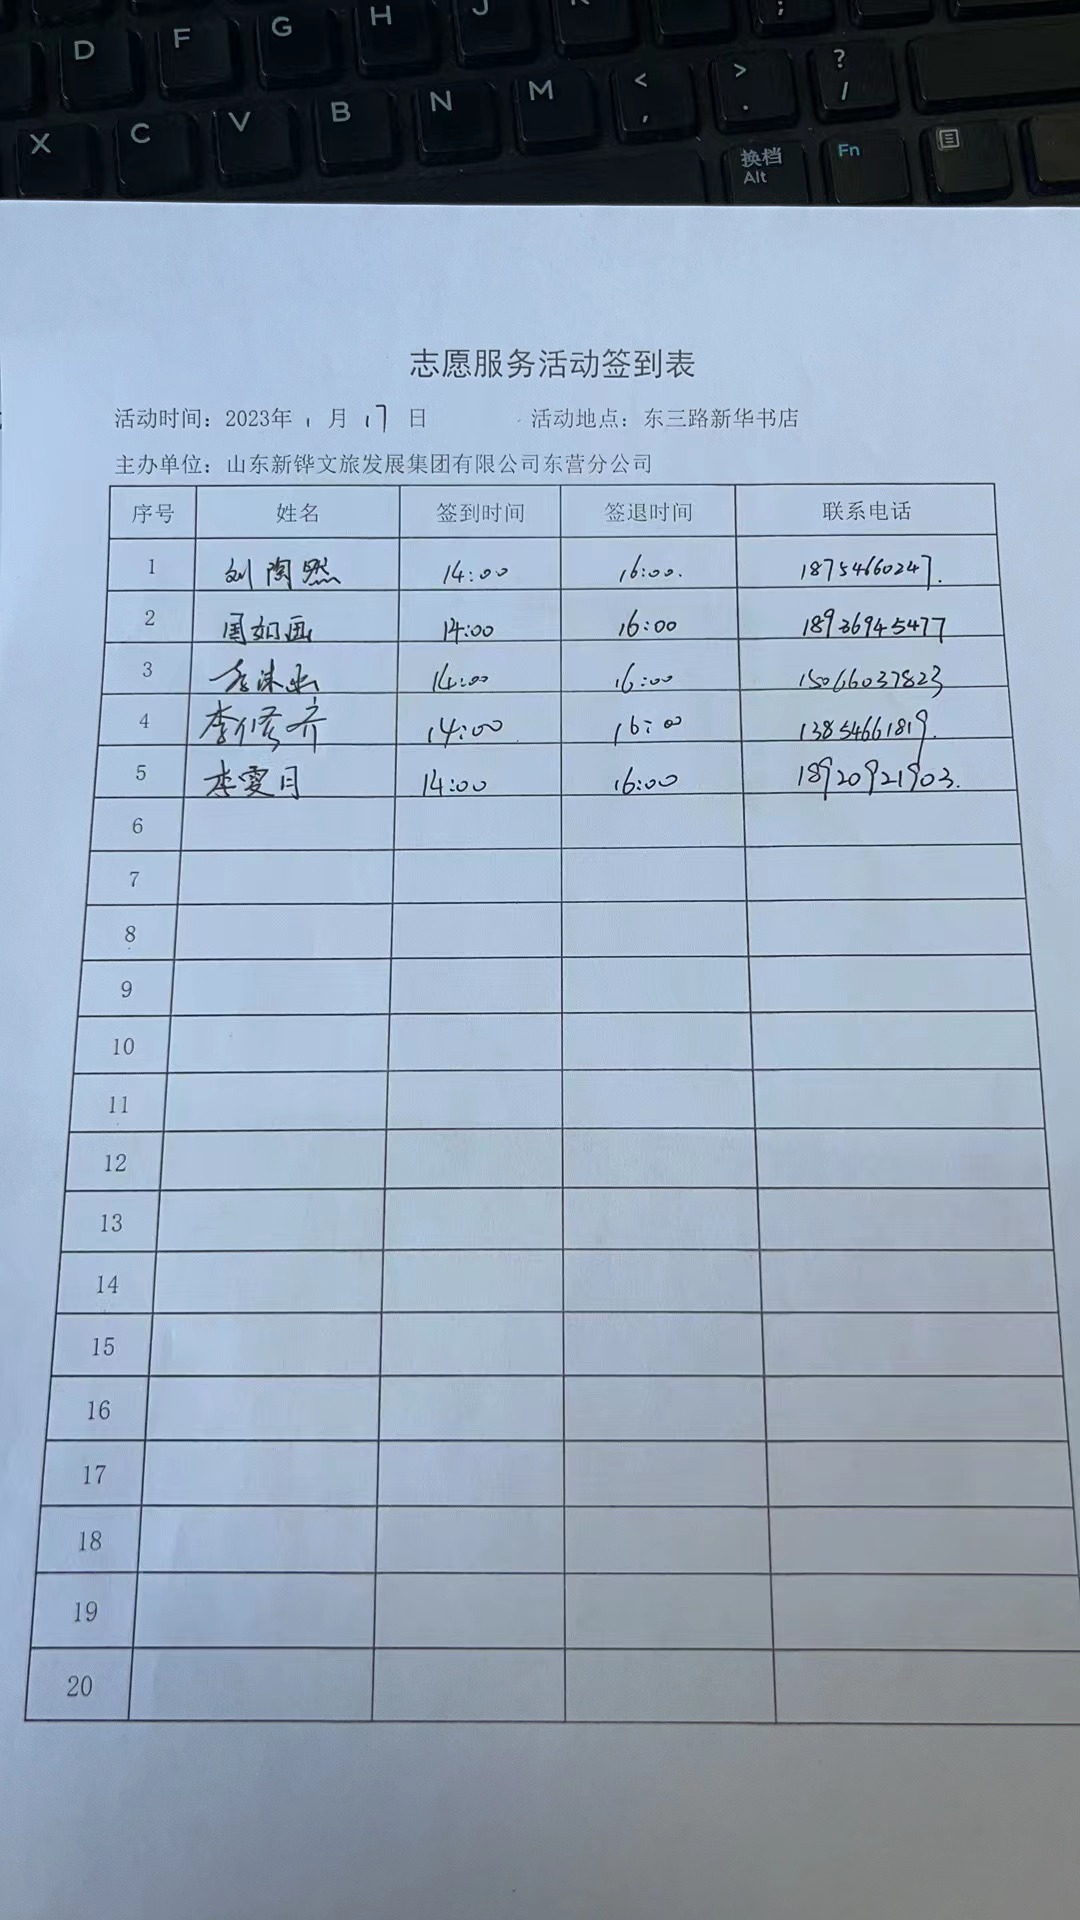 D F G H J K ;
X C V B N M < , > . ? / 
换档 Fn
Alt
志愿服务活动签到表
活动时间：2023年 1 月 17 日 活动地点：东三路新华书店
主办单位：山东新铧文旅发展集团有限公司东营分公司
序号 姓名 签到时间 签退时间 联系电话
1 刘陶然 14:00 16:00. 18754660247.
2 周如画 14:00 16:00 18936945477
3 14:00 16:00 15066037823
4 李修齐 14:00 16:00 13854661819.
5 李雯月 14:00 16:00 18920921903.
6
7
8
9
10
11
12
13
14
15
16
17
18
19
20